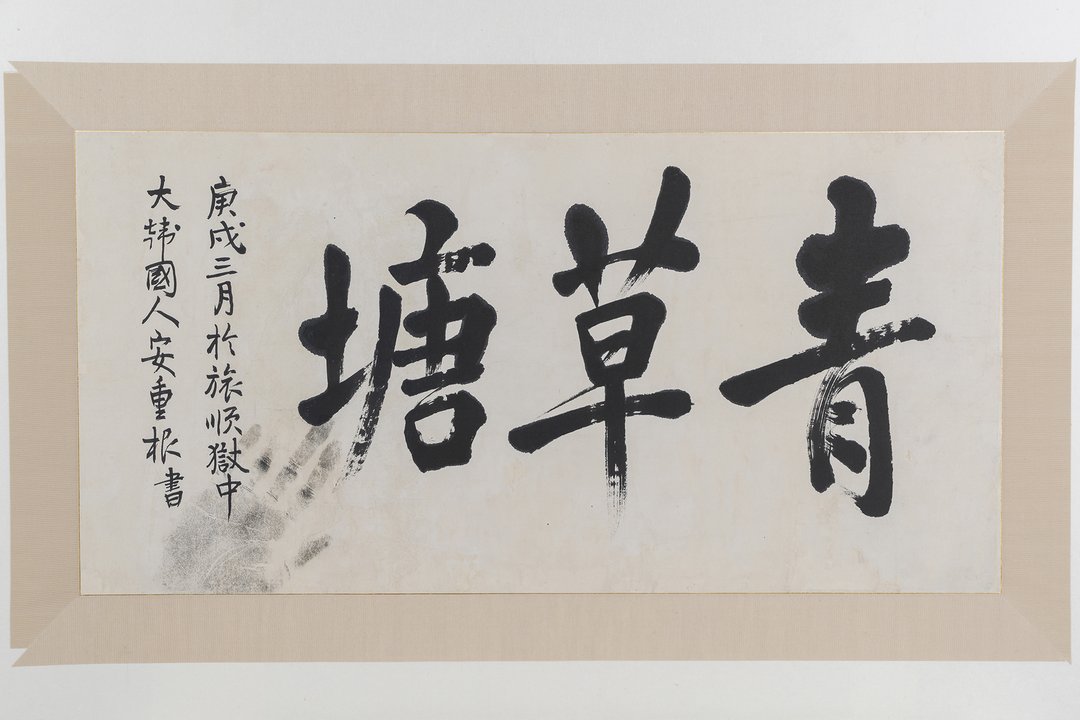 青草塘
庚戌三月於旅順獄中
大韩國人安重根書